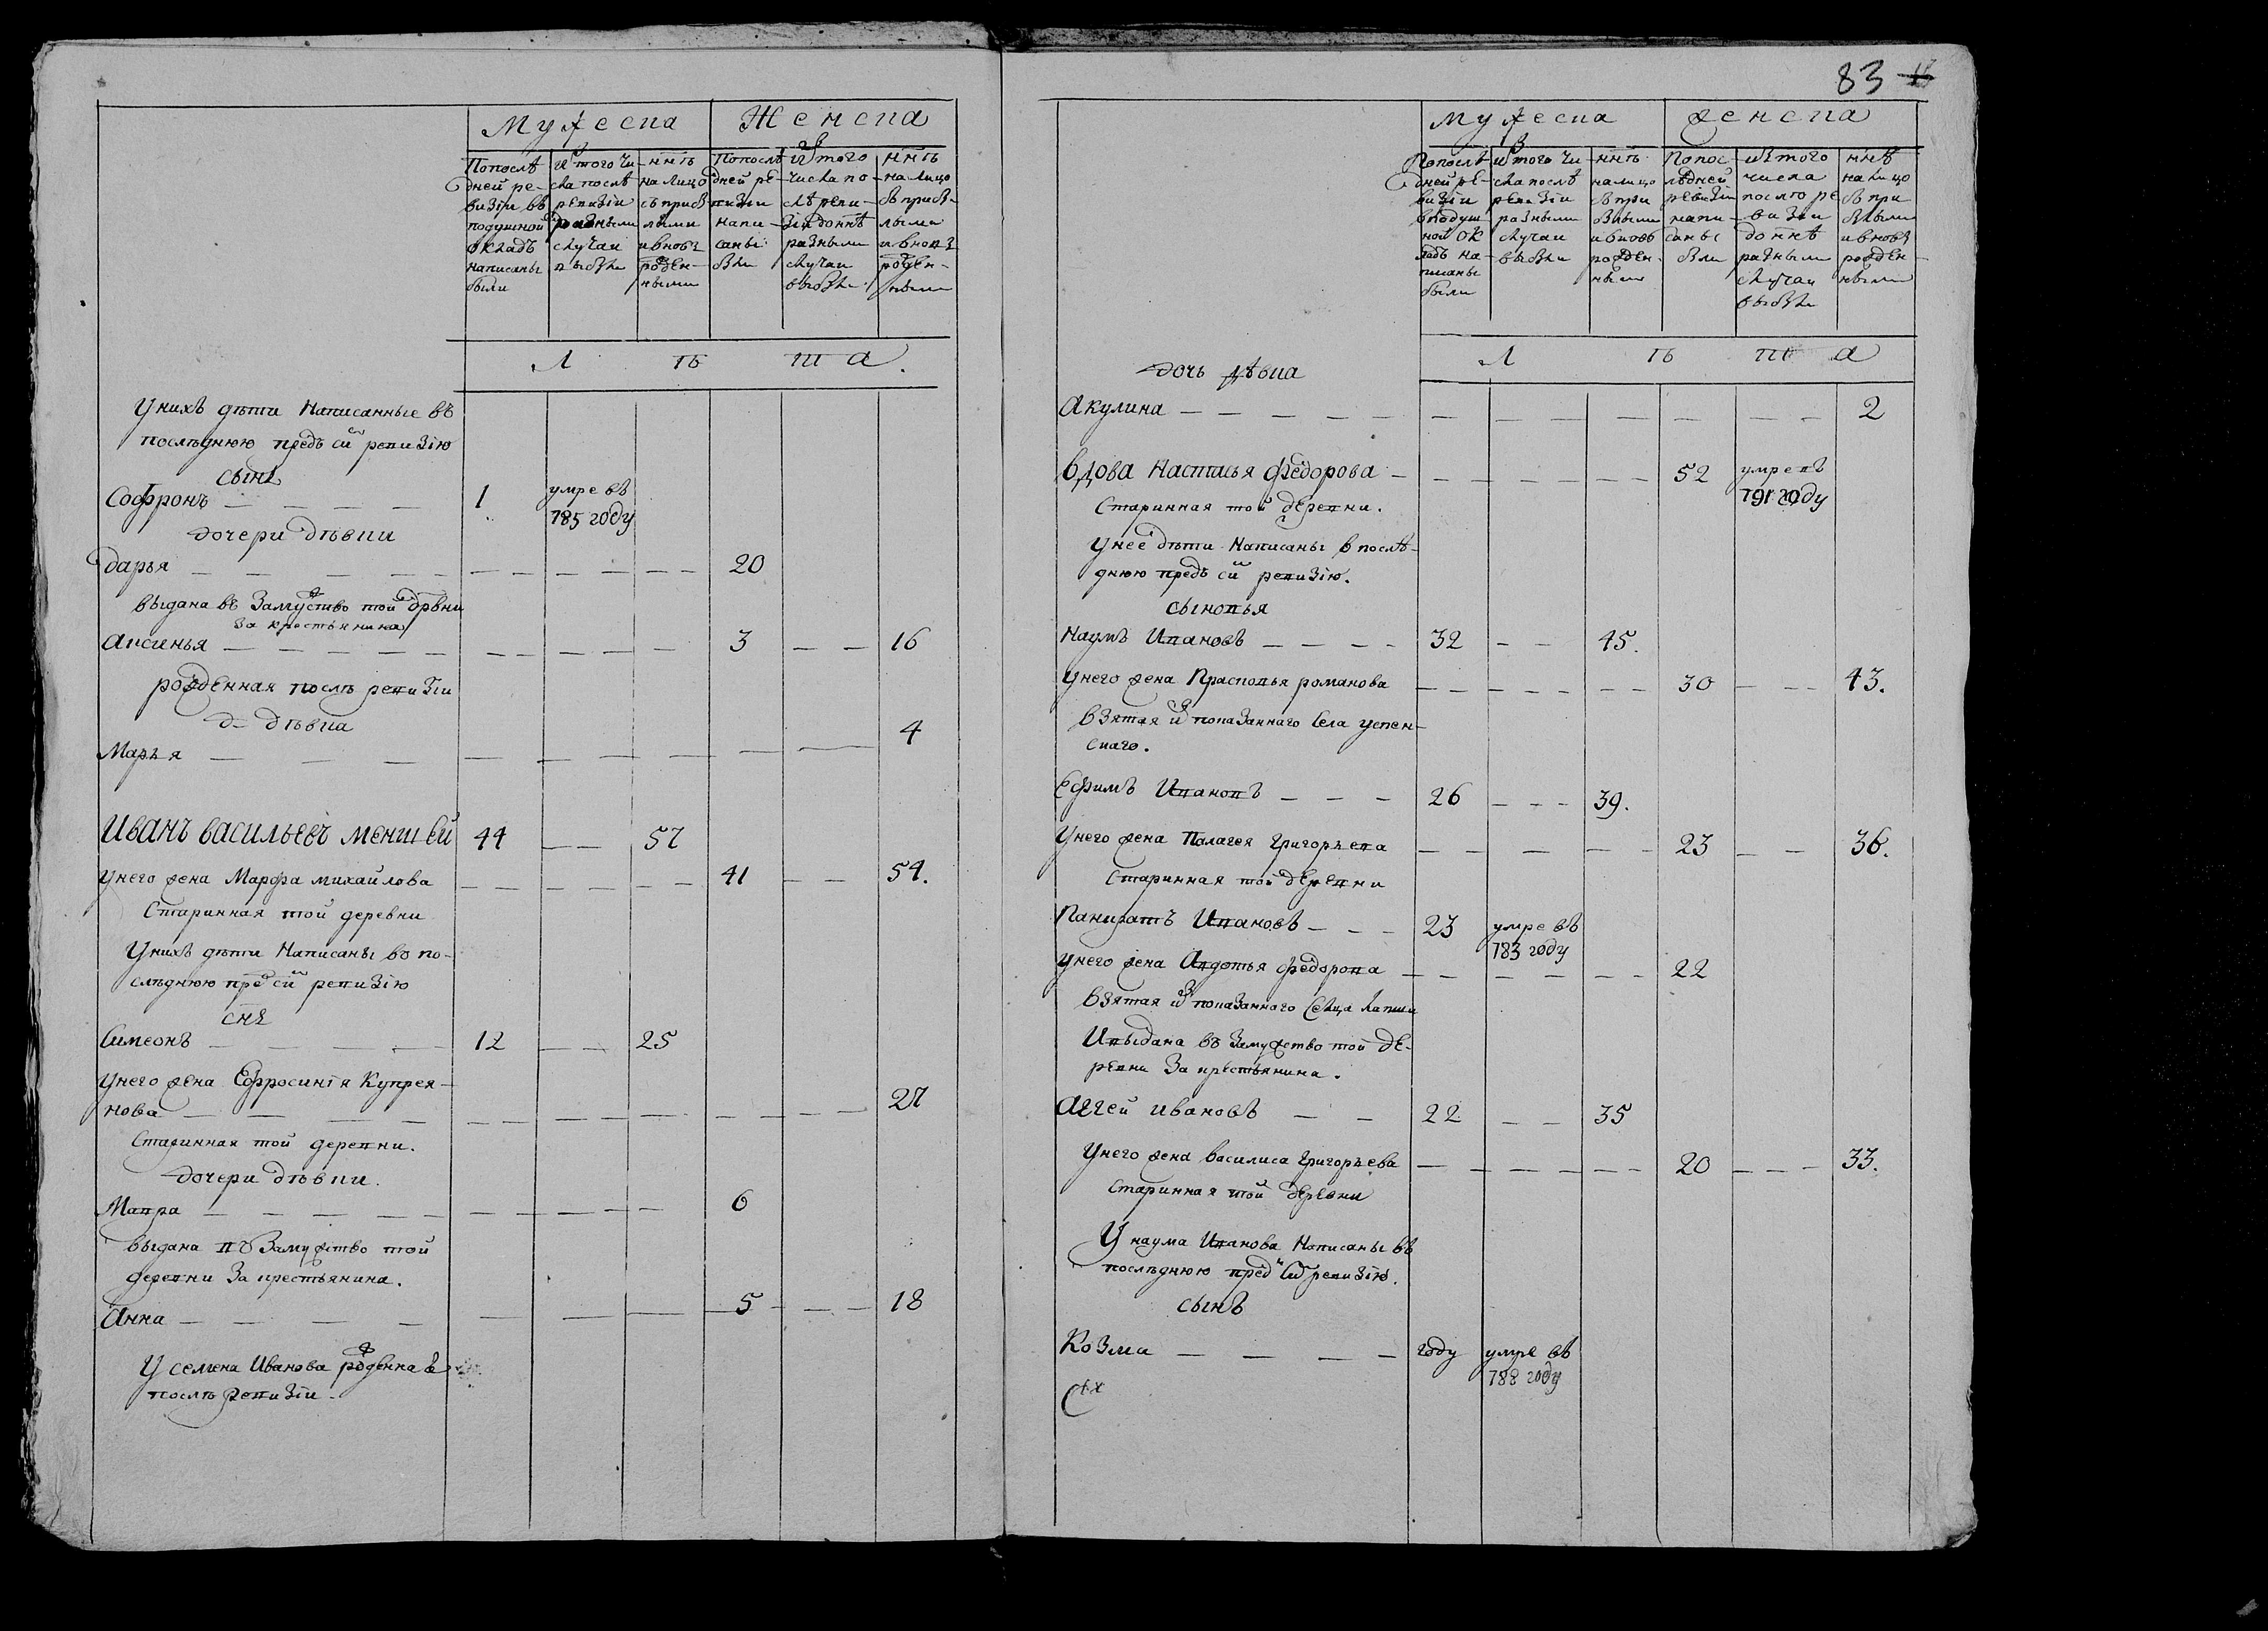 Мужеска Женска
Попослѣ дней ревизіи въ подушной окладъ написаны были
Изъ того числа послѣ ревизіи разными случаи выбыли
ннѣ на лицо съ прибылыми и вновь рожденными
Попослѣ дней ревизіи написаны были
Изъ того числа послѣ ревизіи до ннѣ разными случаи выбыли
ннѣ на лицо съ прибылыми и вновь рожденными
Л ѣ т а.
Унихъ дѣти Написанные въ
послѣднюю предъ сей ревизію
сынъ
Софронъ — — — — 1 умре въ
785 году
дочери дѣвки
Дарья — — — — — 20
выдана въ Замужство той дрвни
за крестьянина
Аксинья — — — — — 3 — — 16
рожденная послѣ ревизіи
д— дѣвка
Марья — — — — 4
Иванъ васильевъ меншей 44 — — 57
Унего жена Марфа михайлова — — — 41 — — 54.
Старинная той деревни
Унихъ дѣти Написаны во по-
слѣднюю пред сей ревизію
снъ
Симеонъ — — — — 12 — — 25
Унего жена Ефросинія Купрея-
нова — — — — — 27
Старинная той деревни.
дочери дѣвки.
Мавра — — — — — 6
выдана въ Замужство той
деревни За крестьянина.
Анна — — — — 5 — — 18
У семена Иванова рожденна
послѣ ревизіи.
83
Мужеска женска
Попослѣ дней ревизіи вподушной окладъ написаны были
изъ того числа послѣ ревизіи разными случаи выбыли
ннѣ налицо съ прибылыми и вновь рожденными
Попослѣдней ревизіи написаны были
изъ того числа послѣ ревизіи до ннѣ разными случаи выбыли
ннѣ на лицо съ прибылыми и вновь рожденными
Л ѣ т а
дочь дѣвка
Акулина — — — — — 2
Вдова Настасья Федорова — — — 52 умре въ
791 году
Старинная той деревни.
Унее дѣти Написаны в послѣ-
днюю предъ сей ревизію.
сыновья
Наумъ Ивановъ — — — — 32 — — 45.
Унего жена Прасковья романова — — — 30 — — 43.
Взятая изъ показаннаго Села успен-
скаго.
Ефимъ Ивановъ — — — 26 — — — 39.
Унего жена Палагея Григорьева — — — 23 — — 36.
Старинная той деревни
Панкратъ Ивановъ — — — 23 умре въ
783 году
Унего жена Авдотья Федорова — — — 22
Взятая изъ показаннаго Селца
И выдана въ Замужство той де-
ревни За крестьянина.
Аггей ивановъ — — 22 — — 35
Унего жена василиса григорьева — — — 20 — — — 33.
Старинная той деревни
У наума Иванова Написаны въ
послѣднюю пред сей ревизію.
сынъ
Козма — — — — году умре въ
788 году